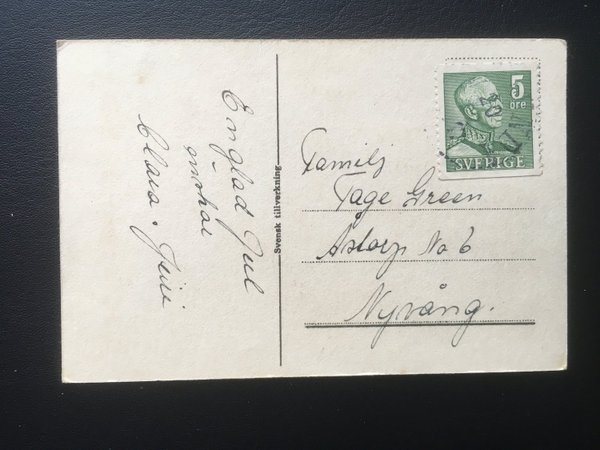 En glad Jul
önskar
Clara.
Svensk tillverkning
5
öre
SVERIGE
Familj
Tage Green
Åstorp No 6
Nyvång.